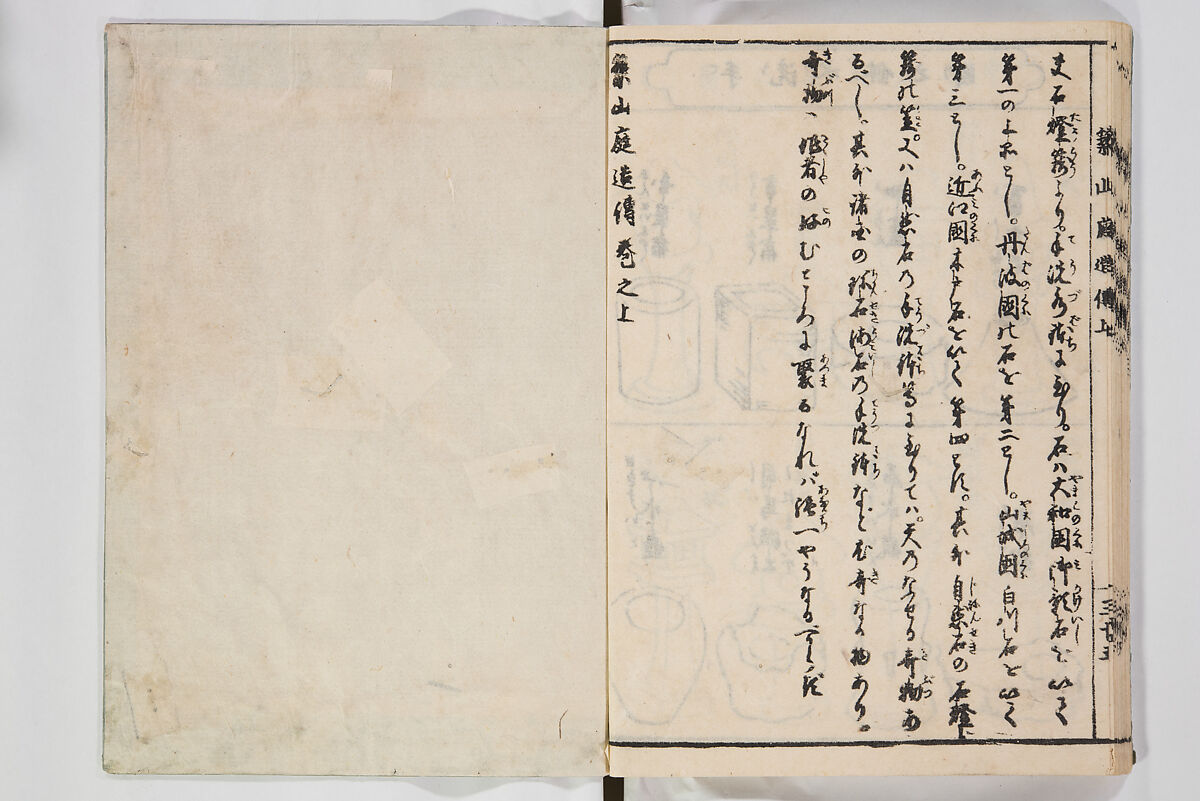 夫石燈籠より。手洗水鉢に至り。石ハ大和國御影石を以て
第一の上品とし。丹波國の石を第二とし。山城國白川石を以て
第三とし。近江國木戸石を以て第四とす。其外自然石の石燈
籠の笠。又ハ自然石乃手洗鉢等に至りてハ。天乃なせる奇物あ
るべし。其外諸色の 石海石乃手洗鉢など 奇なる物あり。
奇物ハ 好者の好むところに聚るなれバ 強一やうならず
築山庭造傳巻之上
築山庭造傳上
三十五